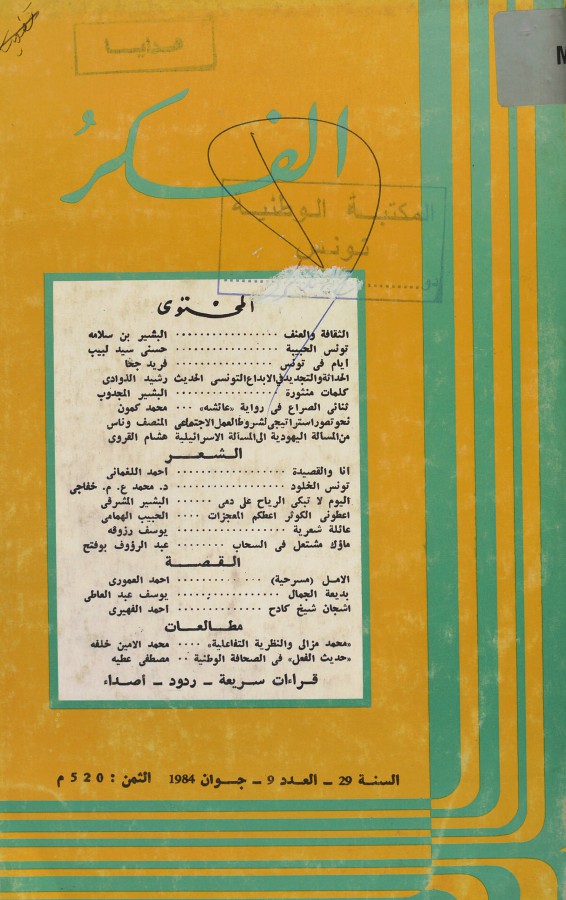 هدايا
M
الفكر
المكتبة الوطنية
تونس
المحتوى
الثقافة والعنف ................. البشير بن سلامه
تونس الحبيبة ................ حسنى سيد لبيب
أيام فى تونس ................. فريد جحا
الحداثة والتجديد فى الابداع التونسى الحديث رشيد الذوادى
كلمات منثورة ............... البشير المجدوب
ثنائى الصراع فى رواية «عائشه» ... محمد كمون
نحو تصور استراتيجى لشروط العمل الاجتماعى المنصف وناس
من المسألة اليهودية الى المسألة الاسرائيلية هشام القروى
الشعر
أنا والقصيدة .................. أحمد اللغمانى
تونس الخلود .................. د. محمد ع. م. خفاجى
اليوم لا تبكى الرياح على دمى ...... البشير المشرقى
أعطونى الكوثر أعطكم المعجزات .... الحبيب الهمامى
عائلة شعرية .................. يوسف رزوقه
ماؤك مشتعل فى السحاب ........ عبد الرؤوف بوفتح
القصة
الامل (مسرحية) .............. أحمد العمورى
بديعة الجمال ................. يوسف عبد العاطى
أشجان شيخ كادح .............. أحمد الفهيرى
مطالعات
«محمد مزالى والنظرية التفاعلية» .... محمد الامين خلفه
«حديث الفعل» فى الصحافة الوطنية .. مصطفى عطيه
قراءات سريعة - ردود - أصداء
السنة 29 - العدد 9 - جوان 1984 الثمن : 520 م